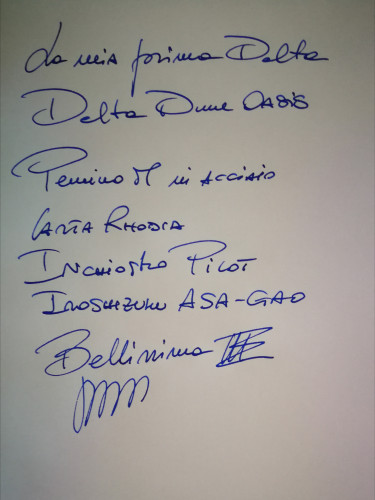 La mia prima Delta
Delta Dune OASIS
Pennino M in acciaio
CARTA RHODIA
INCHIOSTRO PILOT
IROSHIZUKU ASA-GAO
Bellissima